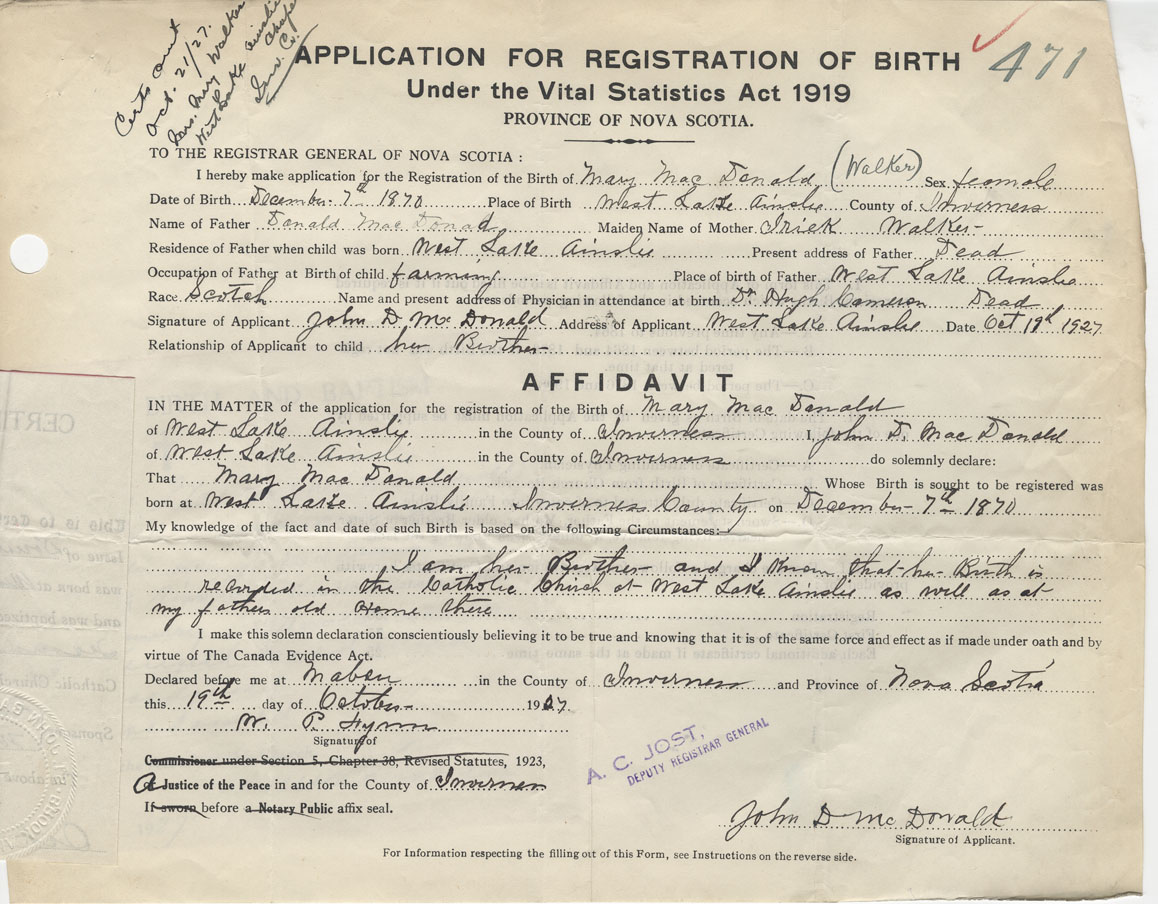 Certs sent
Oct. 21/27.
Mrs. Mary Walker
West Lake Ainslie
Chapel
Inv. Co.
471
APPLICATION FOR REGISTRATION OF BIRTH
Under the Vital Statistics Act 1919
PROVINCE OF NOVA SCOTIA.
TO THE REGISTRAR GENERAL OF NOVA SCOTIA :
I hereby make application for the Registration of the Birth of Mary Mac Donald (Walker) Sex female
Date of Birth December 7th 1870 Place of Birth West Lake Ainslie County of Inverness
Name of Father Donald Mac Donald Maiden Name of Mother Walker
Residence of Father when child was born West Lake Ainslie Present address of Father Dead
Occupation of Father at Birth of child farming Place of birth of Father West Lake Ainslie
Race Scotch Name and present address of Physician in attendance at birth Dr Hugh Cameron Dead
Signature of Applicant John D McDonald Address of Applicant West Lake Ainslie Date Oct 19th 1927
Relationship of Applicant to child her Brother
AFFIDAVIT
IN THE MATTER of the application for the registration of the Birth of Mary Mac Donald
of West Lake Ainslie in the County of Inverness I, John D. Mac Donald
of West Lake Ainslie in the County of Inverness do solemnly declare:
That Mary Mac Donald Whose Birth is sought to be registered was
born at West Lake Ainslie Inverness County on December 7th 1870
My knowledge of the fact and date of such Birth is based on the following Circumstances:
I am her Brother and I know that her Birth is
recorded in the Catholic Church at West Lake Ainslie as well as at
my fathers old Home there
I make this solemn declaration conscientiously believing it to be true and knowing that it is of the same force and effect as if made under oath and by
virtue of The Canada Evidence Act.
Declared before me at Mabou in the County of Inverness and Province of Nova Scotia
this 19th day of October 1927.
W. P. Flynn
Signature of
Commissioner under Section 5, Chapter 38, Revised Statutes, 1923,
A Justice of the Peace in and for the County of Inverness
If sworn before a Notary Public affix seal.
A. C. JOST,
DEPUTY REGISTRAR GENERAL
John D McDonald
Signature of Applicant.
For Information respecting the filling out of this Form, see Instructions on the reverse side.